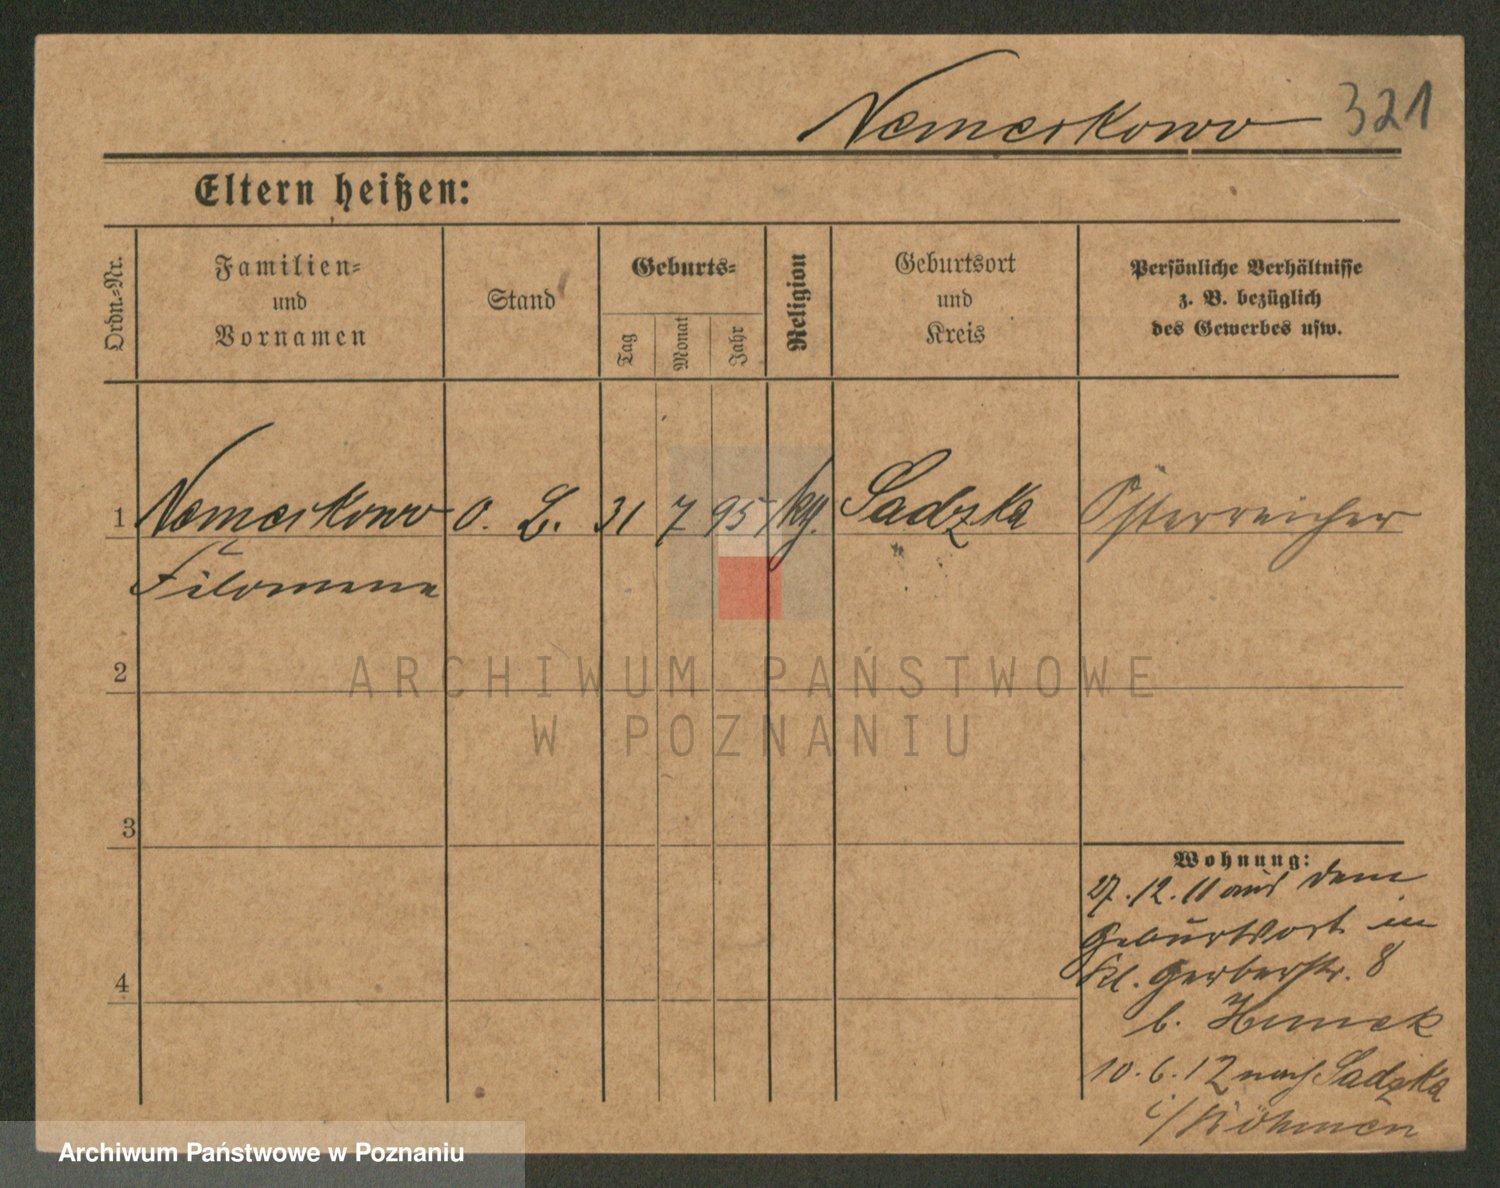 Nemeskowo 321
Eltern heißen:
Ordn.-Nr.
Familien-
und
Vornamen
Stand
Geburts-
Tag
Monat
Jahr
Religion
Geburtsort
und
Kreis
Persönliche Verhältnisse
z. B. bezüglich
des Gewerbes usw.
1 Nemeskowo o. B. 31 7 95 kg. Sadzka Österreicher
Filomena
2
3
4
Wohnung:
27.12.11 aus dem
Geburtsort in
Kl. Gerberstr. 8
b.
10.6.12 nach Sadzka
i/ Böhmen
ARCHIWUM PAŃSTWOWE
W POZNANIU
Archiwum Państwowe w Poznaniu